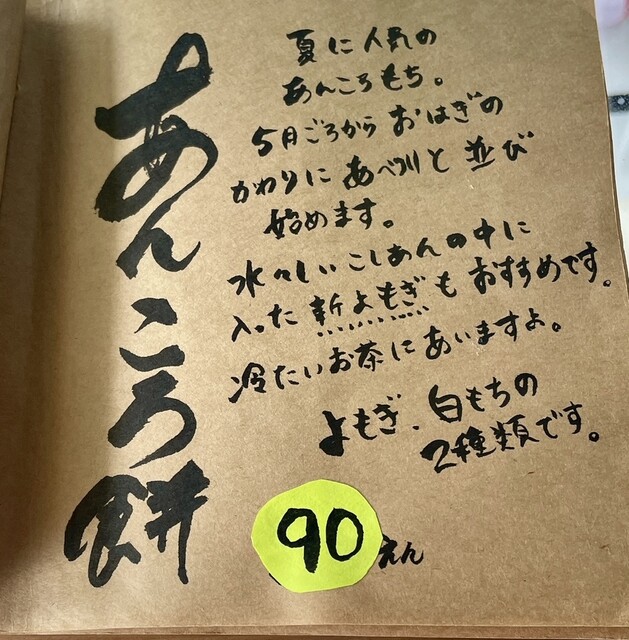 あんころ餅
夏に人気の
あんころもち。
5月ごろから おはぎの
かわりに あべ川と 並び
始めます。
水々しい こしあんの中に
入った 新よもぎも おすすめです。
冷たいお茶にあいますよ。
よもぎ、白もちの
2種類です。
90えん